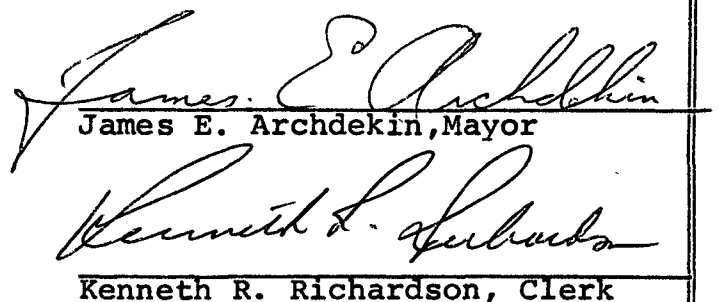 James. E Archdekin
James E. Archdekin,Mayor
Kenneth R. Richardson
Kenneth R. Richardson, Clerk